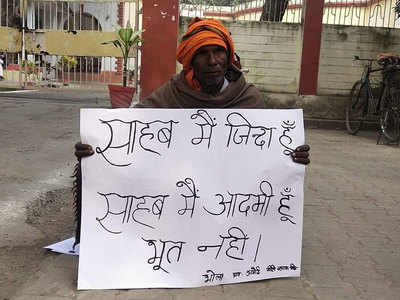 साहब मैं जिंदा हूँ
साहब मैं आदमी हूँ
भूत नही।
भोला